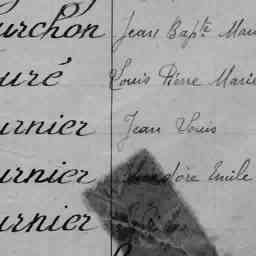 urchon Jean Bapte Mau
uré Louis Pierre Marie
urnier Jean Louis
urnier Emile
urnier